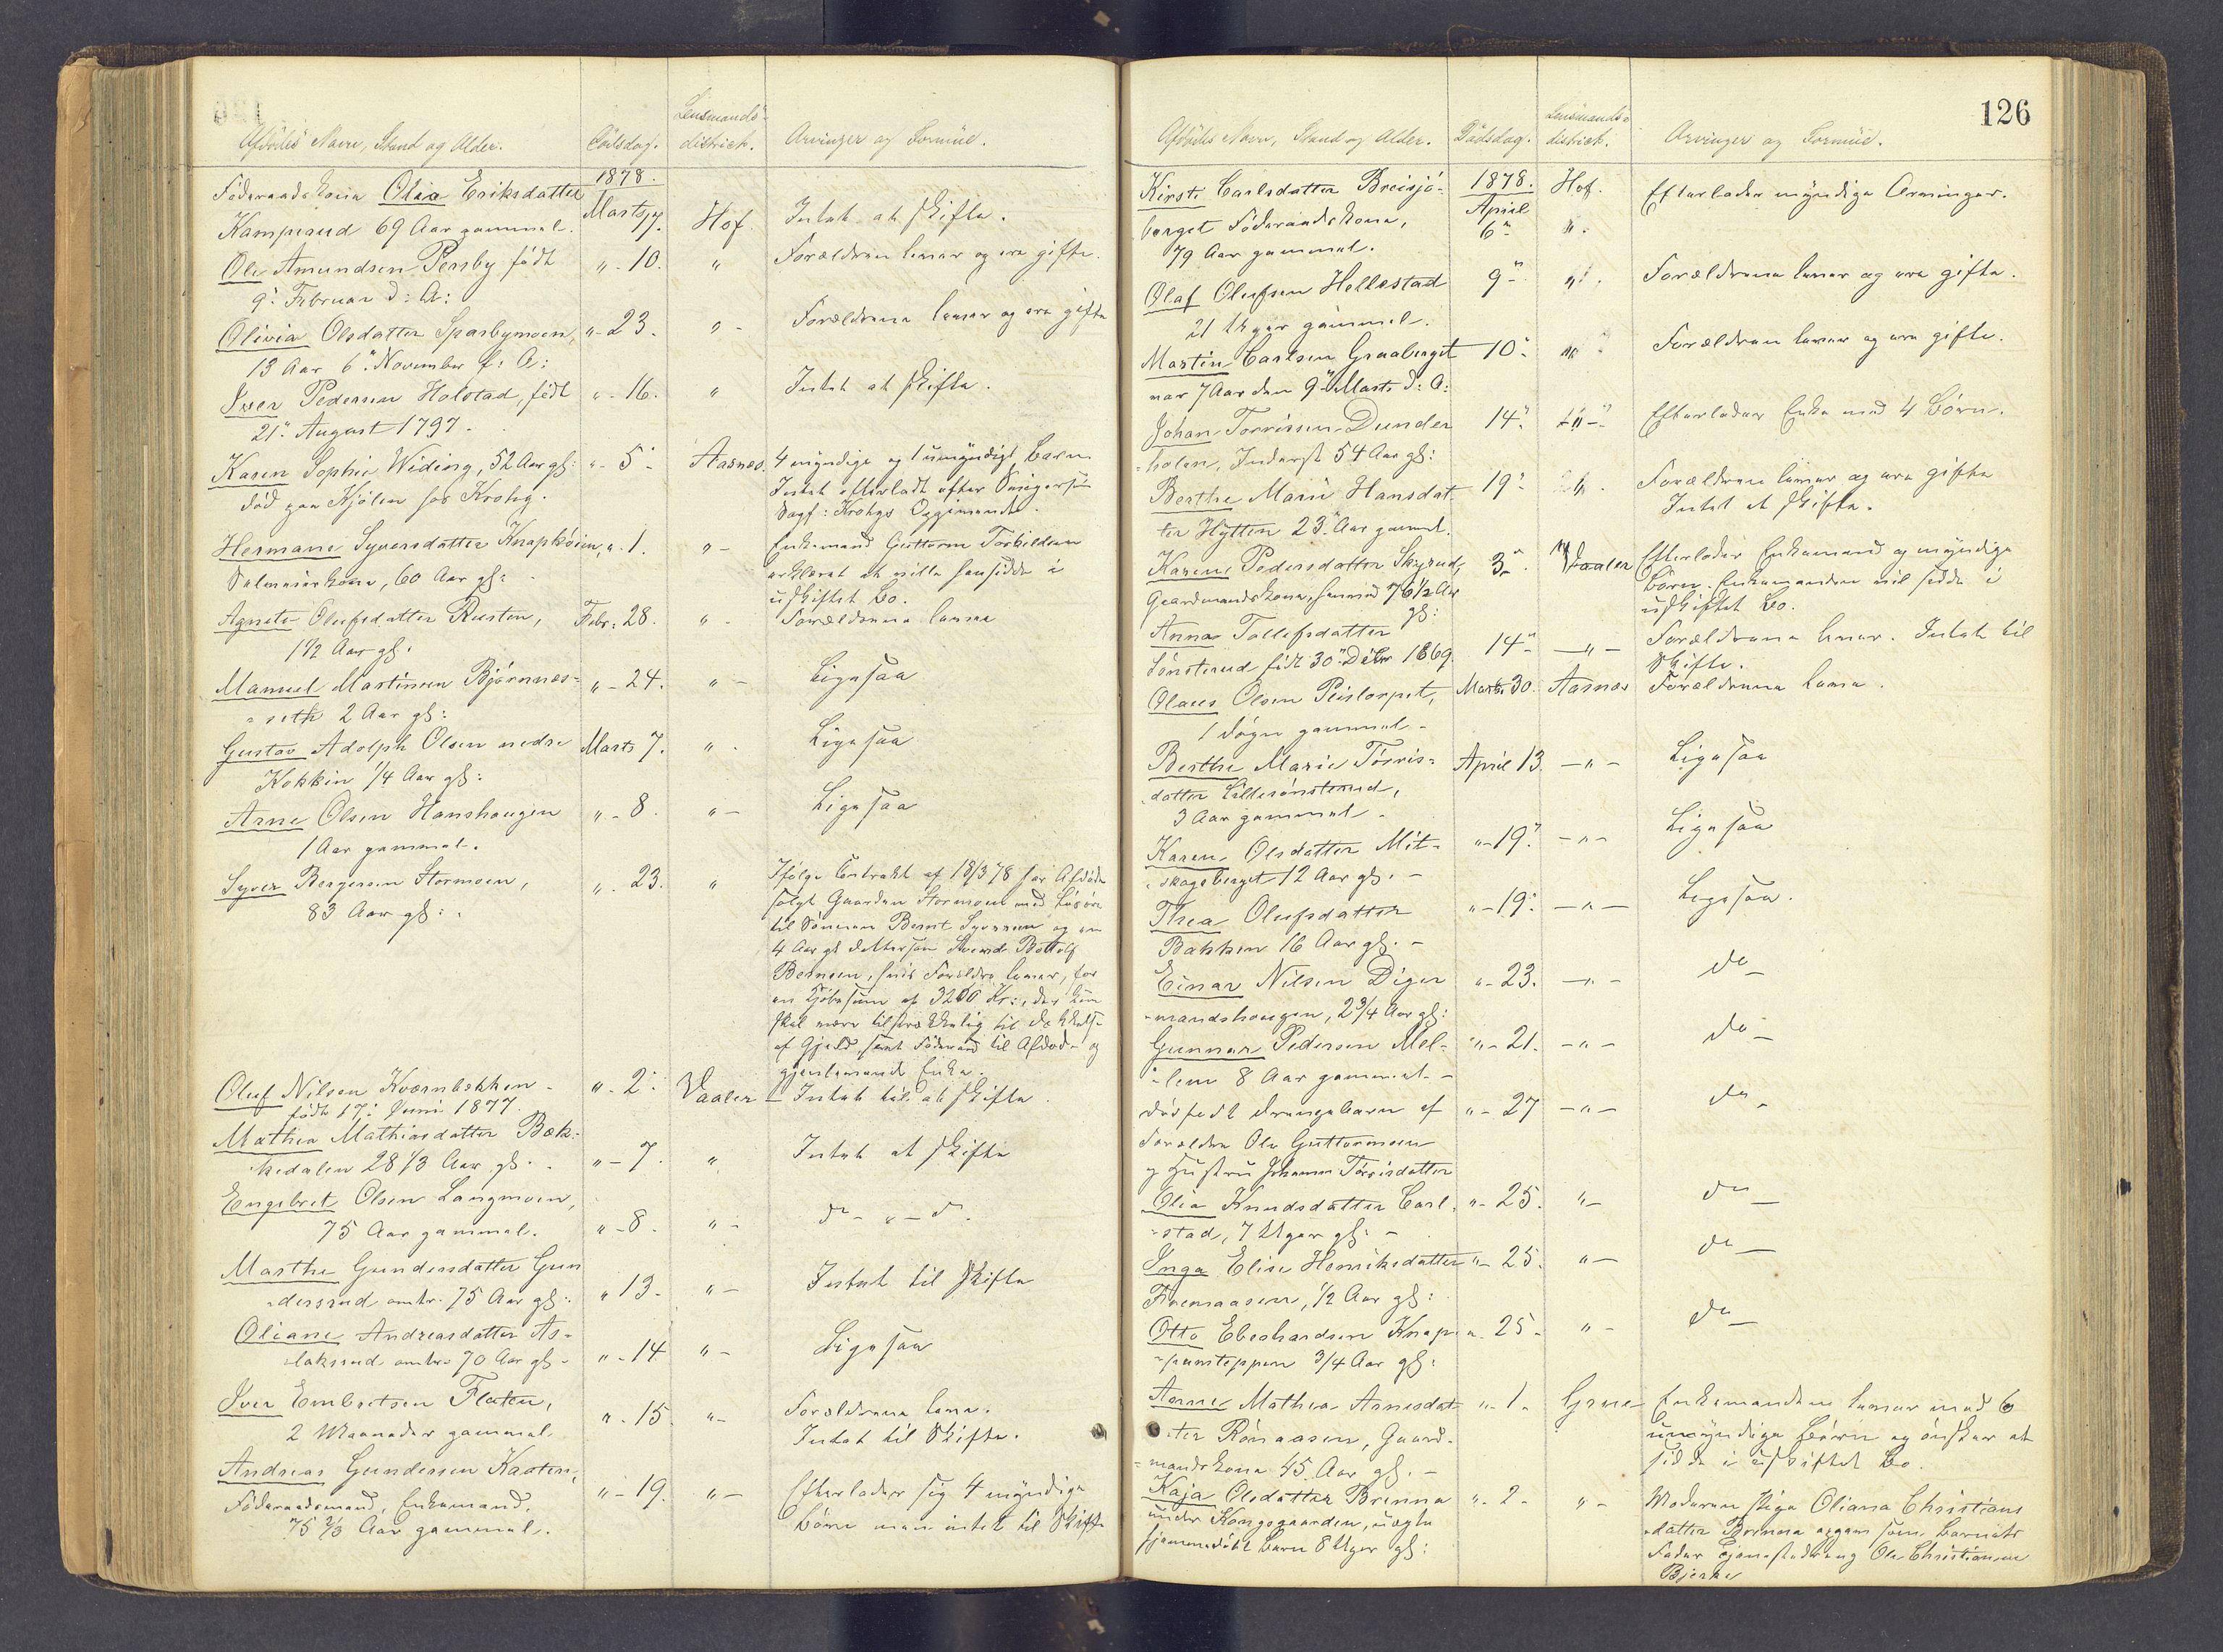 Afdødes Navn, Stand og Alder.
Dødsdag.
Lensmands-
district.
Arvinger og Formue.
1878.
Føderaadskone Olia Eriksdatter
Kamperud 69 Aar gammel.
Marts 7.
Hof.
Intet at skifte.
Ole Amundsen Persby født
9. Februar d: A:
" - 10.
"
Forældrene lever og ere gifte.
Olivia Olsdatter Sparbymoen,
13 Aar 6. November f: A:
" - 23.
" -
Forældrene lever og ere gifte
Iver Pedersen Holstad, født
21. August 1797.
" - 16.
"
Intet at skifte.
Karen Sophie Widing, 52 Aar gl:
død paa Kjølen hos Krohg.
" - 5 -
Aasnes.
4 myndige og 1 umyndigt Barn
Intet efterladt efter
Sagf: Krohgs Opgivende.
Hermane Syversdatter Knapkøien,
Selveierkone, 60 Aar gl:
" - 1.
" -
Enkemand Guttorm Torkildsen
erklæret at ville hensidde i
uskiftet Bo.
Agnete Olufsdatter Rusten,
1 1/2 Aar gl.
Febr: 28.
" -
Forældrene lever
Manuel Martinsen Bjørnnes-
seth 2 Aar gl:
" - 24.
" -
Ligesaa
Gustav Adolph Olsen nedre
Kokkin 1/4 Aar gl:
Marts 7.
" -
Ligesaa
Arne Olsen Hanshougen
1 Aar gammel.
" - 8.
" -
Ligesaa
Syver Bergersen Stormoen,
83 Aar gl:
" - 23.
"
Ifølge Contrakt af 18/3 78 har Afdøde
solgt Gaarden Stormoen med Løsøre
til Sønnen Bernt Syversen og en
4 Aar gl Dattersøn Bottolf
Bernsen, hvis Forældre lever, for
en Kjøbesum af 3200 Kr:, der kun
skal være tilstrækkelig til Dækkelse
af Gjæld, samt Føderaad til Afdøde og
gjenlevende Enke.
Oluf Nilsen Kværnbekken -
født 17. Juni 1877.
" - 2.
Vaaler
Intet til at skifte.
Mathea Mathiasdatter Bæk-
kedalen 28 1/3 Aar gl.
" - 7.
"
Intet at skifte
Engebret Olsen Langmoen,
75 Aar gammel.
" - 8.
" -
do - " - do.
Marthe Gundersdatter Gun
dersrud omtr. 75 Aar gl:
" 13.
" -
Intet til Skifte
Oliane Andreasdatter As-
laksrud omtr. 70 Aar gl -
" - 14
" -
Ligesaa
Iver Embretsen Flaten,
2 Maaneder gammel.
" - 15
" -
Forældrene leve.
Intet til Skifte.
Andreas Gundersen Kaaten,
Føderaadsmand, Enkemand.
75 2/3 Aar gammel.
" - 19.
" -
Efterlader sig 4 myndige
Børn men intet til Skifte
126
Afdødes Navn, Stand og Alder.
Dødsdag.
Lensmands-
district.
Arvinger og Formue.
Kirsti Carlsdatter Breisjø-
berget Føderaadskone,
79 Aar gammel.
1878.
April
6.
Hof.
".
Efterlader myndige Arvinger.
Olaf Olufsen Hellestad
21 Uger gammel.
9 -
".
Forældrene lever og ere gifte.
Martin Carlsen Graaberget
var 7 Aar den 9. Marts d: A:
10.
"
Forældrene lever og ere gifte.
Johan Torrissen Dunder
holen, Inderst 54 Aar gl:
14.
"
Efterlader Enke med 4 Børn.
Berthe Marie Hansdat
ter Hytten 23 Aar gammel.
19.
"
Forældrene lever og ere gifte
Intet at skifte.
Karen Pedersdatter Skyrud,
Gaardmandskone, 76 1/2 Aar
gl:
3.
Vaaler
Efterlader Enkemand og myndige
Børn. Enkemanden vil sidde i
uskiftet Bo.
Anna Tollefsdatter
Sønsterud født 30. Decbr 1869
14 -
— " —
Forældrene lever. Intet til
Skifte.
Olaus Olsen Peistorpet,
1 Døgn gammel -
Marts 30.
Aasnes
Forældrene leve.
Berthe Marie Torris-
datter Lillesønsterud,
3 Aar gammel.
April 13.
— " —
Ligesaa
Karen Olsdatter Mit-
skogsberget 12 Aar gl. -
" - 19.
— " —
Ligesaa
Thea Olufsdatter
Bakken 16 Aar gl. -
" - 19.
— " —
Ligesaa.
Einar Nilsen Diger
mandshougen, 2 3/4 Aar gl:
" - 23.
— " —
do —
Gunnar Pedersen Mel-
lem 8 Aar gammel -
" - 21.
— " —
do —
Dødfødt Drengebarn af
Forældre Ole Guttormsen
og Hustru Johanne Torrisdatter
" - 27
— " —
do -
Olia Knudsdatter Carl
stad, 7 Uger gl: -
" - 25.
" -
do —
Inga Elise Henriksdatter
1/2 Aar gl:
" - 25.
" -
do —
Otto Eberhardsen Knap
3/4 Aar gl:
" 25 -
" -
do —
Anne Mathea Arnesdat
ter Rønaasen, Gaard-
mandskone 45 Aar gl. -
" - 1.
Grue
Enkemanden lever med 6
umyndige Børn og ønsker at
sidde i uskiftet Bo.
Kaja Olsdatter Brenna
under Kongsgaarden, uægte
hjemmedøbt Barn 8 Uger gl:
" - 2 -
" -
Moderen Pige Oliana Christians
datter Brenna opgav som Barnets
Fader Ole Christiansen
Bjerke